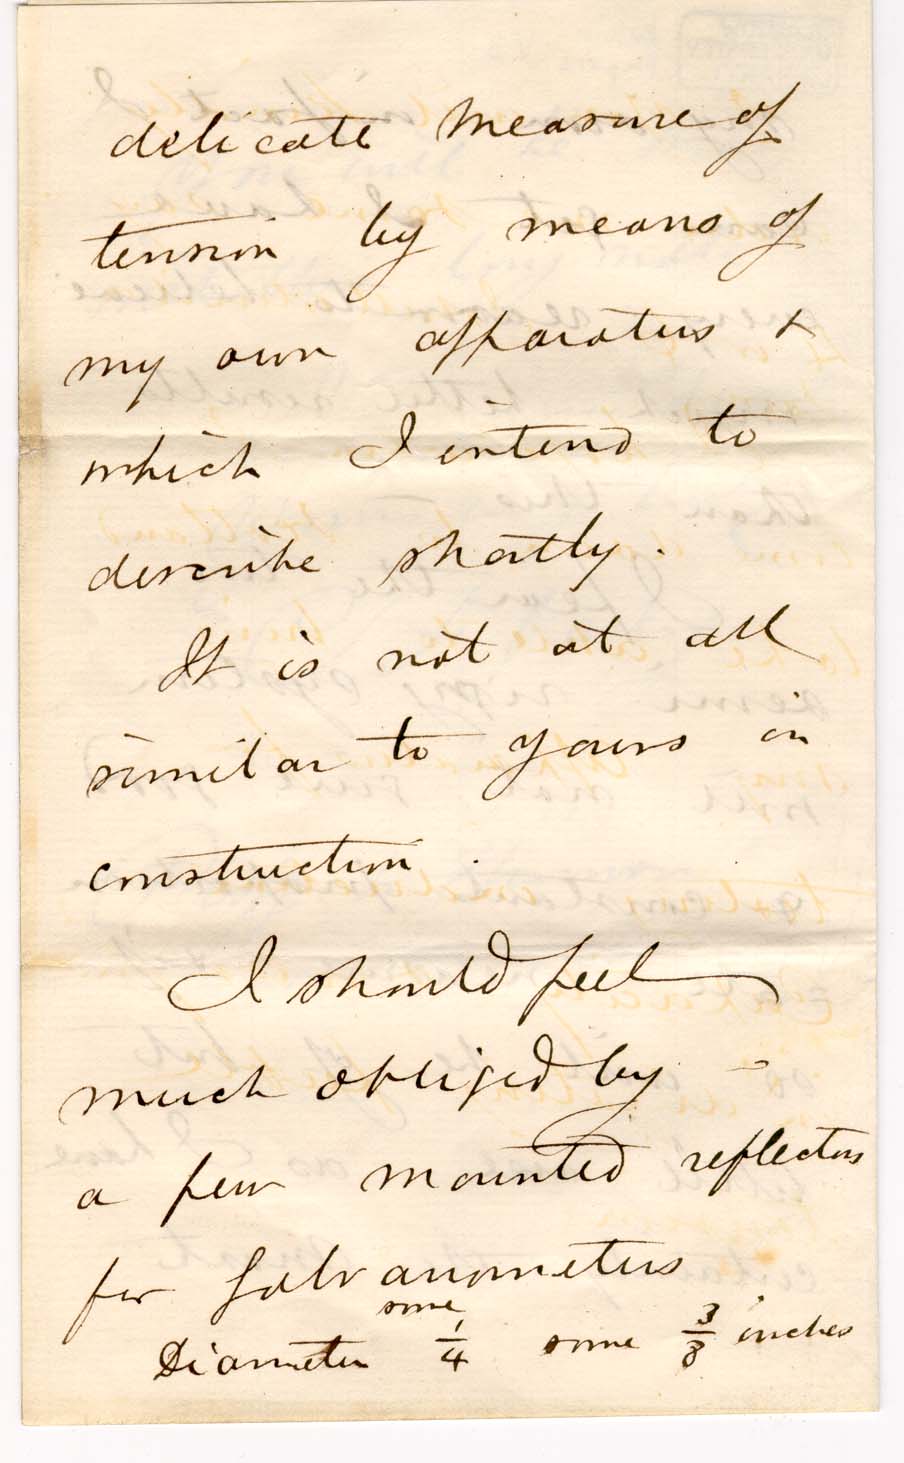 delicate measure of
tension by means of
my own apparatus &
which I intend to
describe shortly.
It is not at all
similar to yours in
construction.
I should feel
much obliged by -
a few mounted reflectors
for Galvanometers
some
Diameter 1/4 some 3/8 inches